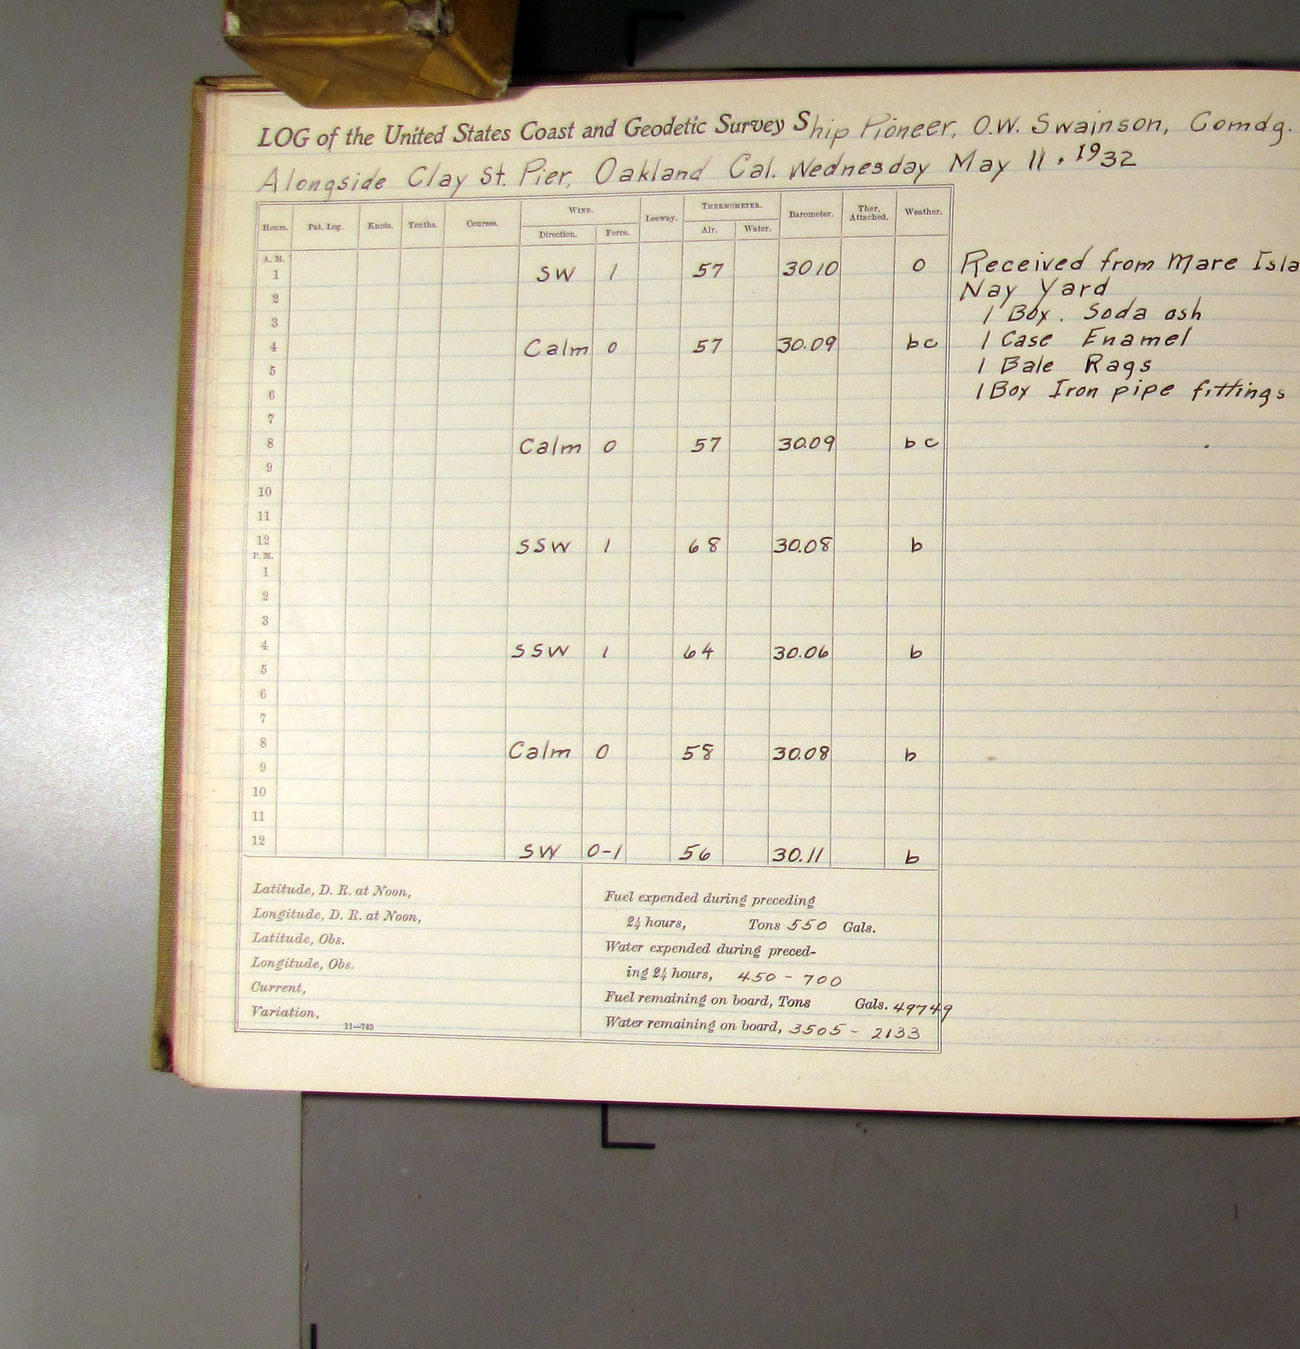 LOG of the United States Coast and Geodetic Survey Ship Pioneer, O.W. Swainson, Comdg.
Alongside Clay St. Pier, Oakland Cal. Wednesday May 11, 1932
Hours. Pat. Log. Knots. Tenths. Courses. WIND. Leeway. THERMOMETER. Barometer. Ther. Attached. Weather.
Direction. Force. Air. Water.
A. M.
1 SW 1 57 3010 o
2
3
4 Calm 0 57 30.09 bc
5
6
7
8 Calm 0 57 30.09 bc
9
10
11
12 SSW 1 68 30.08 b
P. M.
1
2
3
4 SSW 1 64 30.06 b
5
6
7
8 Calm 0 58 30.08 b
9
10
11
12 SW 0-1 56 30.11 b
Received from Mare Isla
Nay Yard
1 Box. Soda ash
1 Case Enamel
1 Bale Rags
1 Box Iron pipe fittings
Latitude, D. R. at Noon,
Longitude, D. R. at Noon,
Latitude, Obs.
Longitude, Obs.
Current,
Variation,
11—743
Fuel expended during preceding
24 hours, Tons 550 Gals.
Water expended during preced-
ing 24 hours, 450 - 700
Fuel remaining on board, Tons Gals. 49749
Water remaining on board, 3505 - 2133